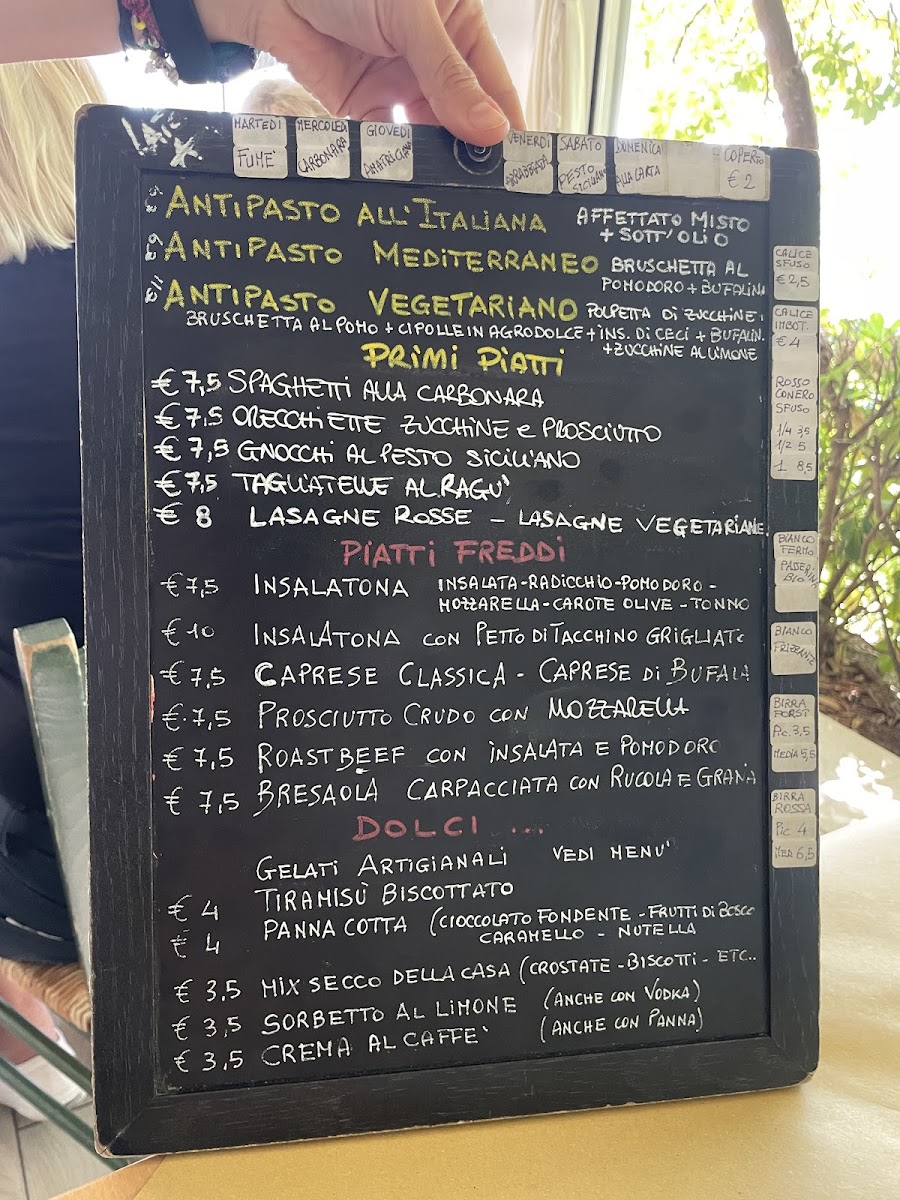 MARTEDI
FUME'
MERCOLEDI
CARBONARA
GIOVEDI
AMATRICIANA
VENERDI
ARRABBIATA
SABATO
PESTO
SICILIANO
DOMENICA
ALLA CARTA
COPERTO
€ 2
ANTIPASTO ALL'ITALIANA AFFETTATO MISTO
+ SOTT'OLIO
€ 9 ANTIPASTO MEDITERRANEO BRUSCHETTA AL
POMODORO + BUFALINA
€ 11 ANTIPASTO VEGETARIANO POLPETTA DI ZUCCHINE
BRUSCHETTA AL POMO + CIPOLLE IN AGRODOLCE + INS. DI CECI + BUFALIN.
+ ZUCCHINE AL LIMONE
PRIMI PIATTI
€ 7,5 SPAGHETTI ALLA CARBONARA
€ 7,5 ORECCHIETTE ZUCCHINE e PROSCIUTTO
€ 7,5 GNOCCHI AL PESTO SICILIANO
€ 7,5 TAGLIATELLE AL RAGU'
€ 8 LASAGNE ROSSE - LASAGNE VEGETARIANE
PIATTI FREDDI
€ 7,5 INSALATONA INSALATA-RADICCHIO-POMODORO-
MOZZARELLA-CAROTE OLIVE - TONNO
€ 10 INSALATONA CON PETTO DI TACCHINO GRIGLIATO
€ 7,5 CAPRESE CLASSICA - CAPRESE di BUFALA
€ 7,5 PROSCIUTTO CRUDO CON MOZZARELLA
€ 7,5 ROASTBEEF CON INSALATA E POMODORO
€ 7,5 BRESAOLA CARPACCIATA CON RUCOLA E GRANA
DOLCI ...
GELATI ARTIGIANALI VEDI MENU'
€ 4 TIRAMISÙ BISCOTTATO
€ 4 PANNA COTTA (CIOCCOLATO FONDENTE - FRUTTI DI BOSCO
CARAMELLO - NUTELLA
€ 3,5 MIX SECCO DELLA CASA (CROSTATE - BISCOTTI - ETC..
€ 3,5 SORBETTO AL LIMONE (ANCHE CON VODKA)
€ 3,5 CREMA AL CAFFE' (ANCHE CON PANNA)
CALICE
SFUSO
€ 2,5
CALICE
IMBOT.
€ 4
ROSSO
CONERO
SFUSO
1/4 3,5
1/2 5
1 8,5
BIANCO
FERMO
PASSERINA
BIO
BIANCO
FRIZZANTE
BIRRA
FORST
Pic. 3,5
MEDIA 5,5
BIRRA
ROSSA
Pic 4
MED 6,5